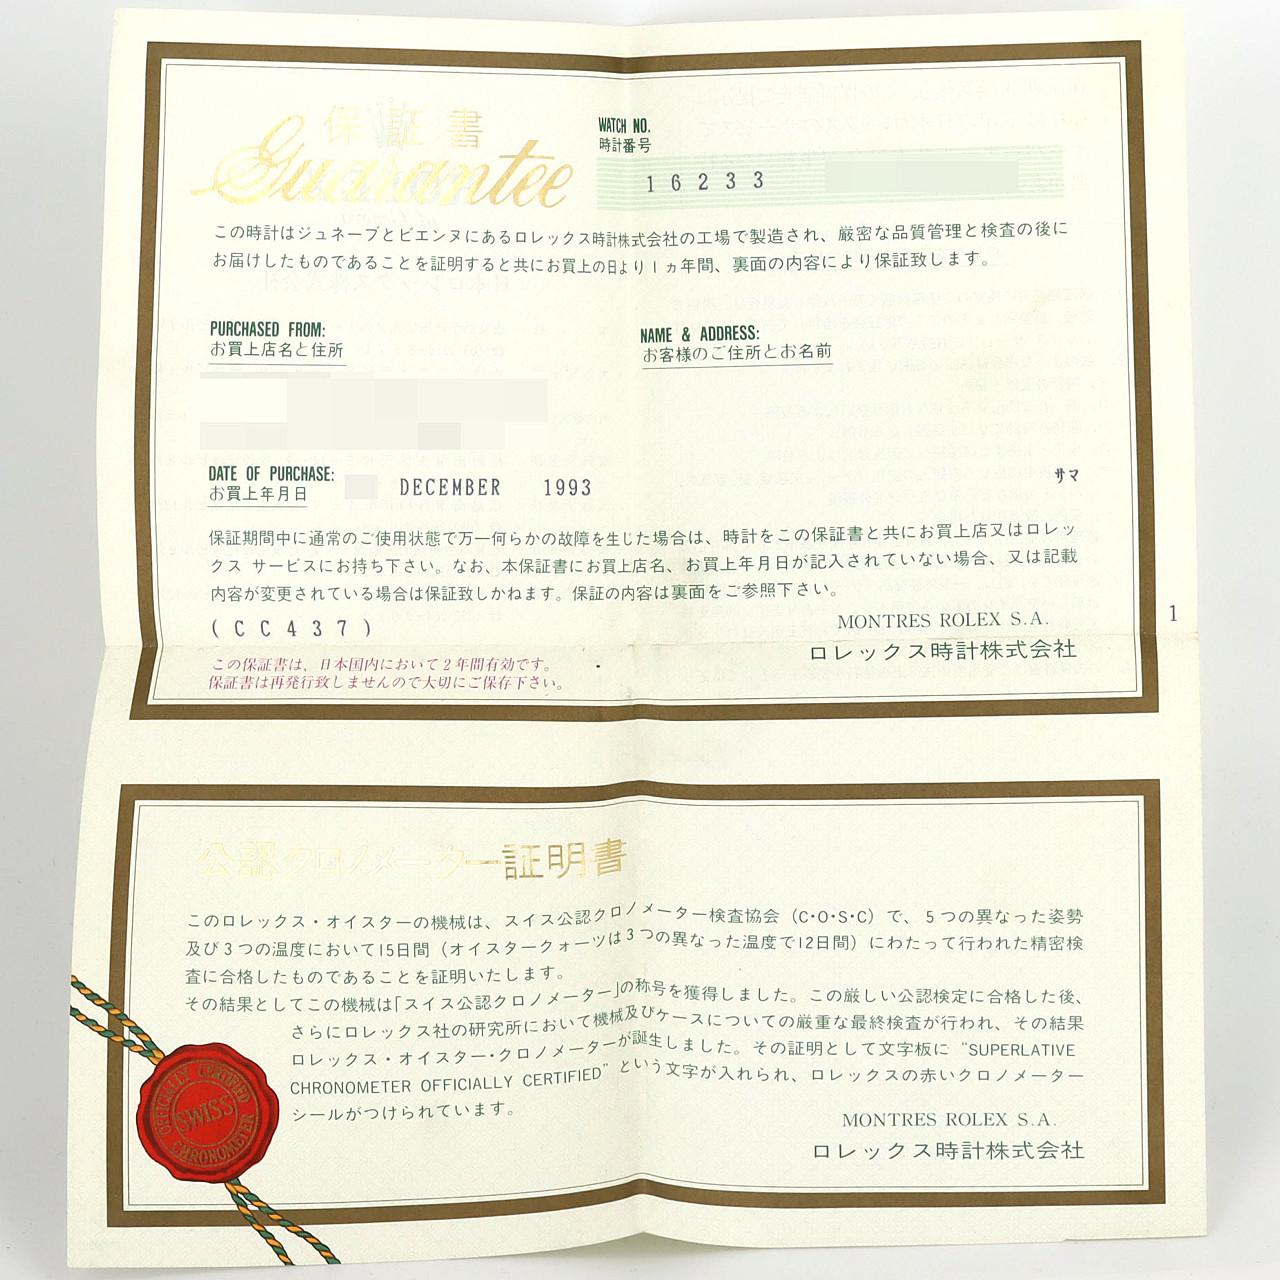 保証書
Guarantee
WATCH NO.
時計番号
16233
この時計はジュネーブとビエンヌにあるロレックス時計株式会社の工場で製造され、厳密な品質管理と検査の後に
お届けしたものであることを証明すると共にお買上の日より1ヵ年間、裏面の内容により保証致します。
PURCHASED FROM:
お買上店名と住所
NAME & ADDRESS:
お客様のご住所とお名前
DATE OF PURCHASE:
お買上年月日
DECEMBER 1993
サマ
保証期間中に通常のご使用状態で万一何らかの故障を生じた場合は、時計をこの保証書と共にお買上店又はロレッ
クス サービスにお持ち下さい。なお、本保証書にお買上店名、お買上年月日が記入されていない場合、又は記載
内容が変更されている場合は保証致しかねます。保証の内容は裏面をご参照下さい。
(CC437)
MONTRES ROLEX S.A.
ロレックス時計株式会社
1
この保証書は、日本国内において2年間有効です。
保証書は再発行致しませんので大切にご保存下さい。
公認クロノメーター証明書
このロレックス・オイスターの機械は、スイス公認クロノメーター検査協会（C・O・S・C）で、5つの異なった姿勢
及び3つの温度において15日間（オイスタークォーツは3つの異なった温度で12日間）にわたって行われた精密検
査に合格したものであることを証明いたします。
その結果としてこの機械は「スイス公認クロノメーター」の称号を獲得しました。この厳しい公認検定に合格した後、
さらにロレックス社の研究所において機械及びケースについての厳重な最終検査が行われ、その結果
ロレックス・オイスター・クロノメーターが誕生しました。その証明として文字板に “SUPERLATIVE
CHRONOMETER OFFICIALLY CERTIFIED” という文字が入れられ、ロレックスの赤いクロノメーター
シールがつけられています。
MONTRES ROLEX S.A.
ロレックス時計株式会社
OFFICIALLY CERTIFIED
SWISS
CHRONOMETER